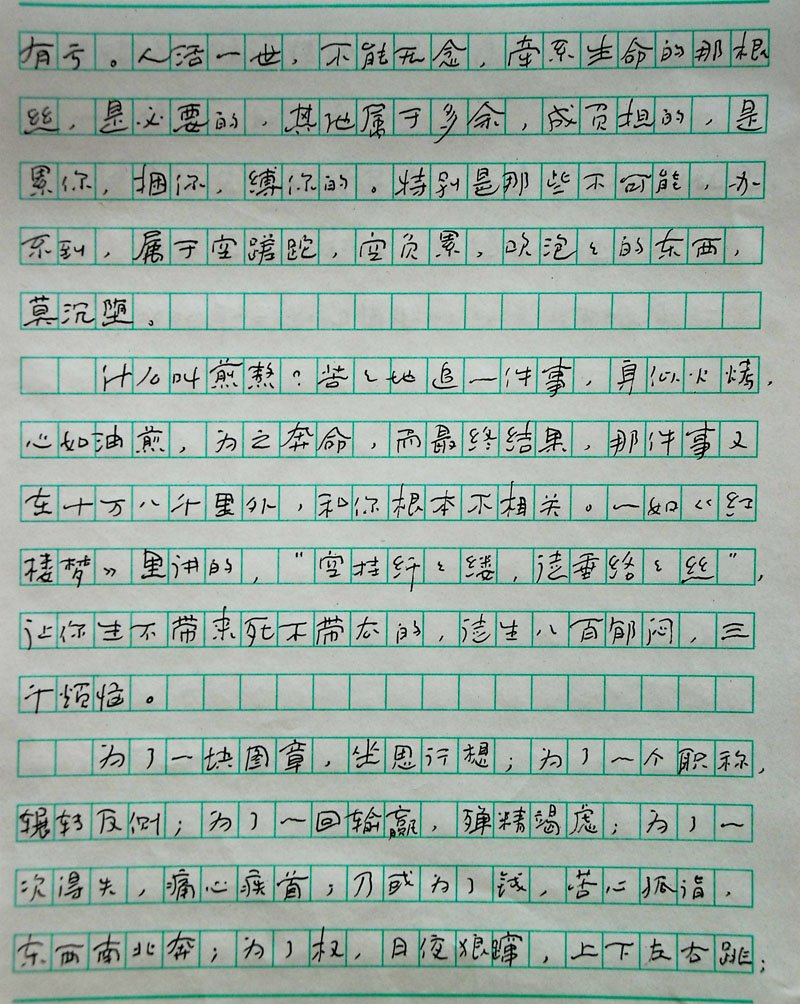 有亏。人活一世，不能无念，牵系生命的那根
丝，是必要的，其他属于多余，成负担的，是
累你，捆你，缚你的。特别是那些不可能，办
不到，属于空蹉跎，空负累，吹泡々的东西，
莫沉堕。
什么叫煎熬？苦々地追一件事，身似火烤，
心如油煎，为之奔命，而最终结果，那件事又
在十万八千里外，和你根本不相关。一如《红
楼梦》里讲的，“空挂纤々缕，徒垂络々丝”，
让你生不带来死不带去的，徒生八百郁闷，三
千烦恼。
为了一块图章，坐思行想；为了一个职称，
辗转反侧；为了一回输赢，殚精竭虑；为了一
次得失，痛心疾首；乃或为了钱，苦心孤诣，
东西南北奔；为了权，日夜狼蹿，上下左右跳；